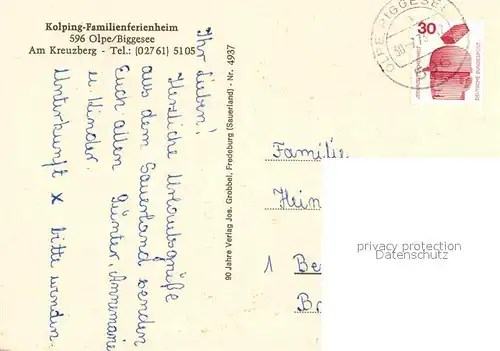 Kolping-Familienferienheim
596 Olpe/Biggesee
Am Kreuzberg - Tel.: (02761) 5105
Ihr Lieben!
Herzliche Urlaubsgrüße
aus dem Sauerland senden
Euch allen Günter, Annemarie
u. Kinder.
Unterkunft x bitte wenden.
90 Jahre Verlag Jos. Grobbel, Fredeburg (Sauerland) - Nr. 4937
OLPE, BIGGESEE
30
DEUTSCHE BUNDESPOST
Familie
Hein
1 Be
privacy protection